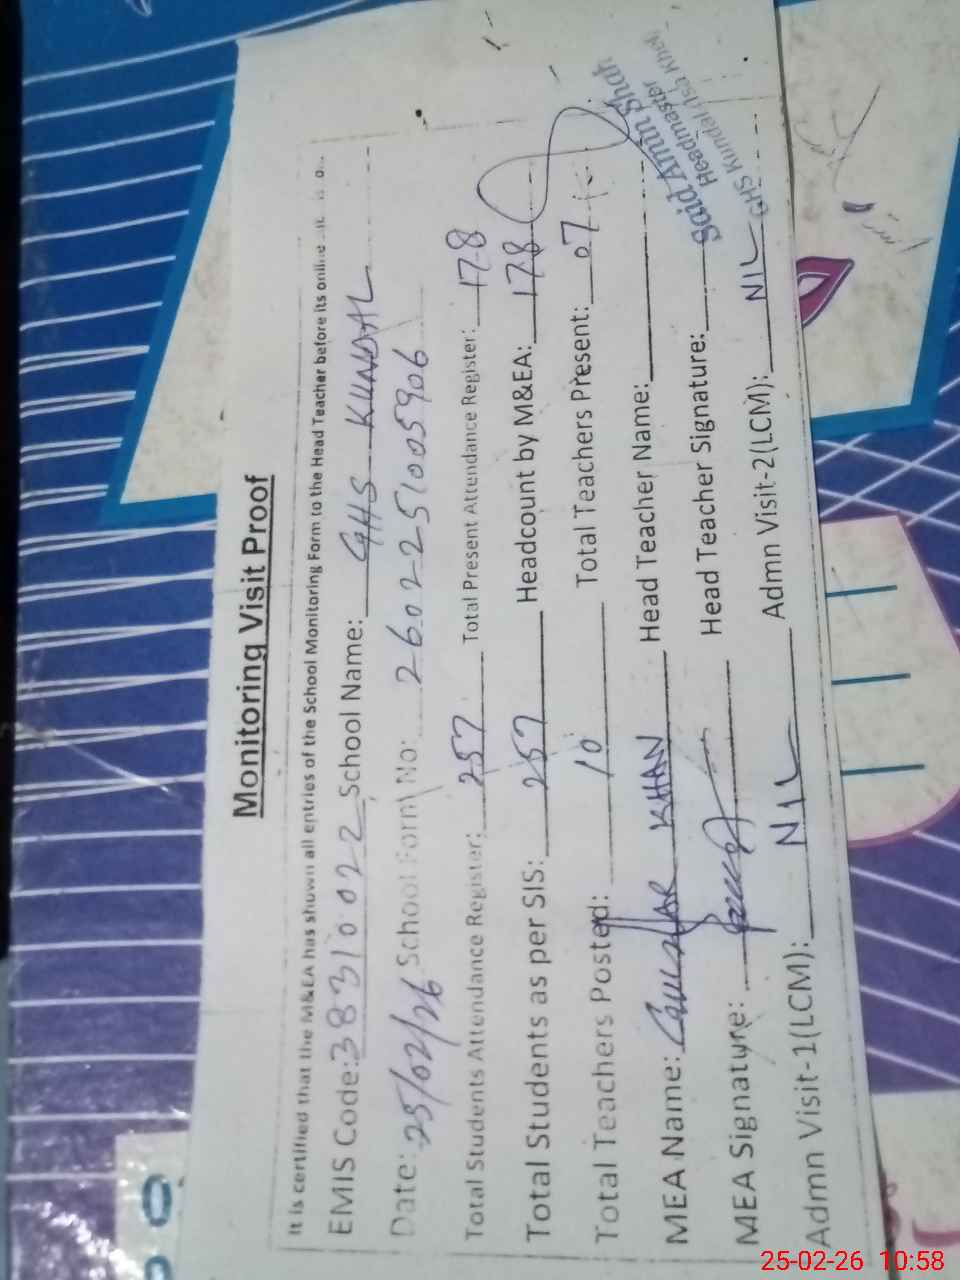 Monitoring Visit Proof
It is certified that the M&EA has shown all entries of the School Monitoring Form to the Head Teacher before its online
EMIS Code: 38310022 School Name: GHS KUNDAL
Date: 25/02/26 School Form No: 2602251005906
Total Students Attendance Register: 257 Total Present Attendance Register: 178
Total Students as per SIS: 257 Headcount by M&EA: 178
Total Teachers Posted: 10 Total Teachers Present: 07
MEA Name: KHAN Head Teacher Name:
MEA Signature: Head Teacher Signature:
Said Amin Shah
Headmaster
GHS Kundal
Admn Visit-1(LCM): NIL Admn Visit-2(LCM): NIL
25-02-26 10:58